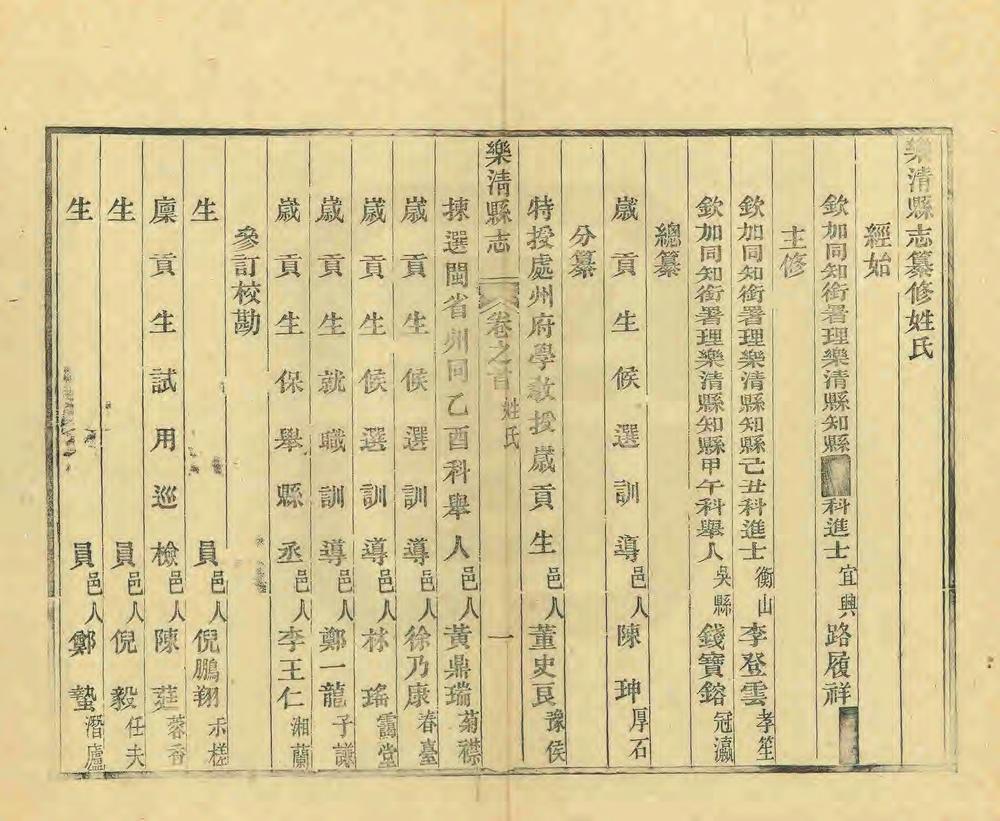 樂清縣志纂修姓氏
經始
欽加同知銜署理樂清縣知縣 科進士宜興路履祥
主修
欽加同知銜署理樂清縣知縣己丑科進士衡山李登雲孝笙
欽加同知銜署理樂清縣知縣甲午科舉人吳縣錢寶鎔冠瀛
總纂
歲貢生候選訓導邑人陳珅厚石
分纂
特授處州府學教授歲貢生邑人董史良豫侯
樂清縣志 卷之首 姓氏 一
揀選閩省州同乙酉科舉人邑人黃鼎瑞菊襟
歲貢生候選訓導邑人徐乃康春臺
歲貢生候選訓導邑人林瑤靄堂
歲貢生就職訓導邑人鄭一龍子謙
歲貢生保舉縣丞邑人李王仁湘蘭
參訂校勘
生員邑人倪鵬翔禾樵
廩貢生試用巡檢邑人陳 蓉舟
生員邑人倪毅任夫
生員邑人鄭蟄潛廬